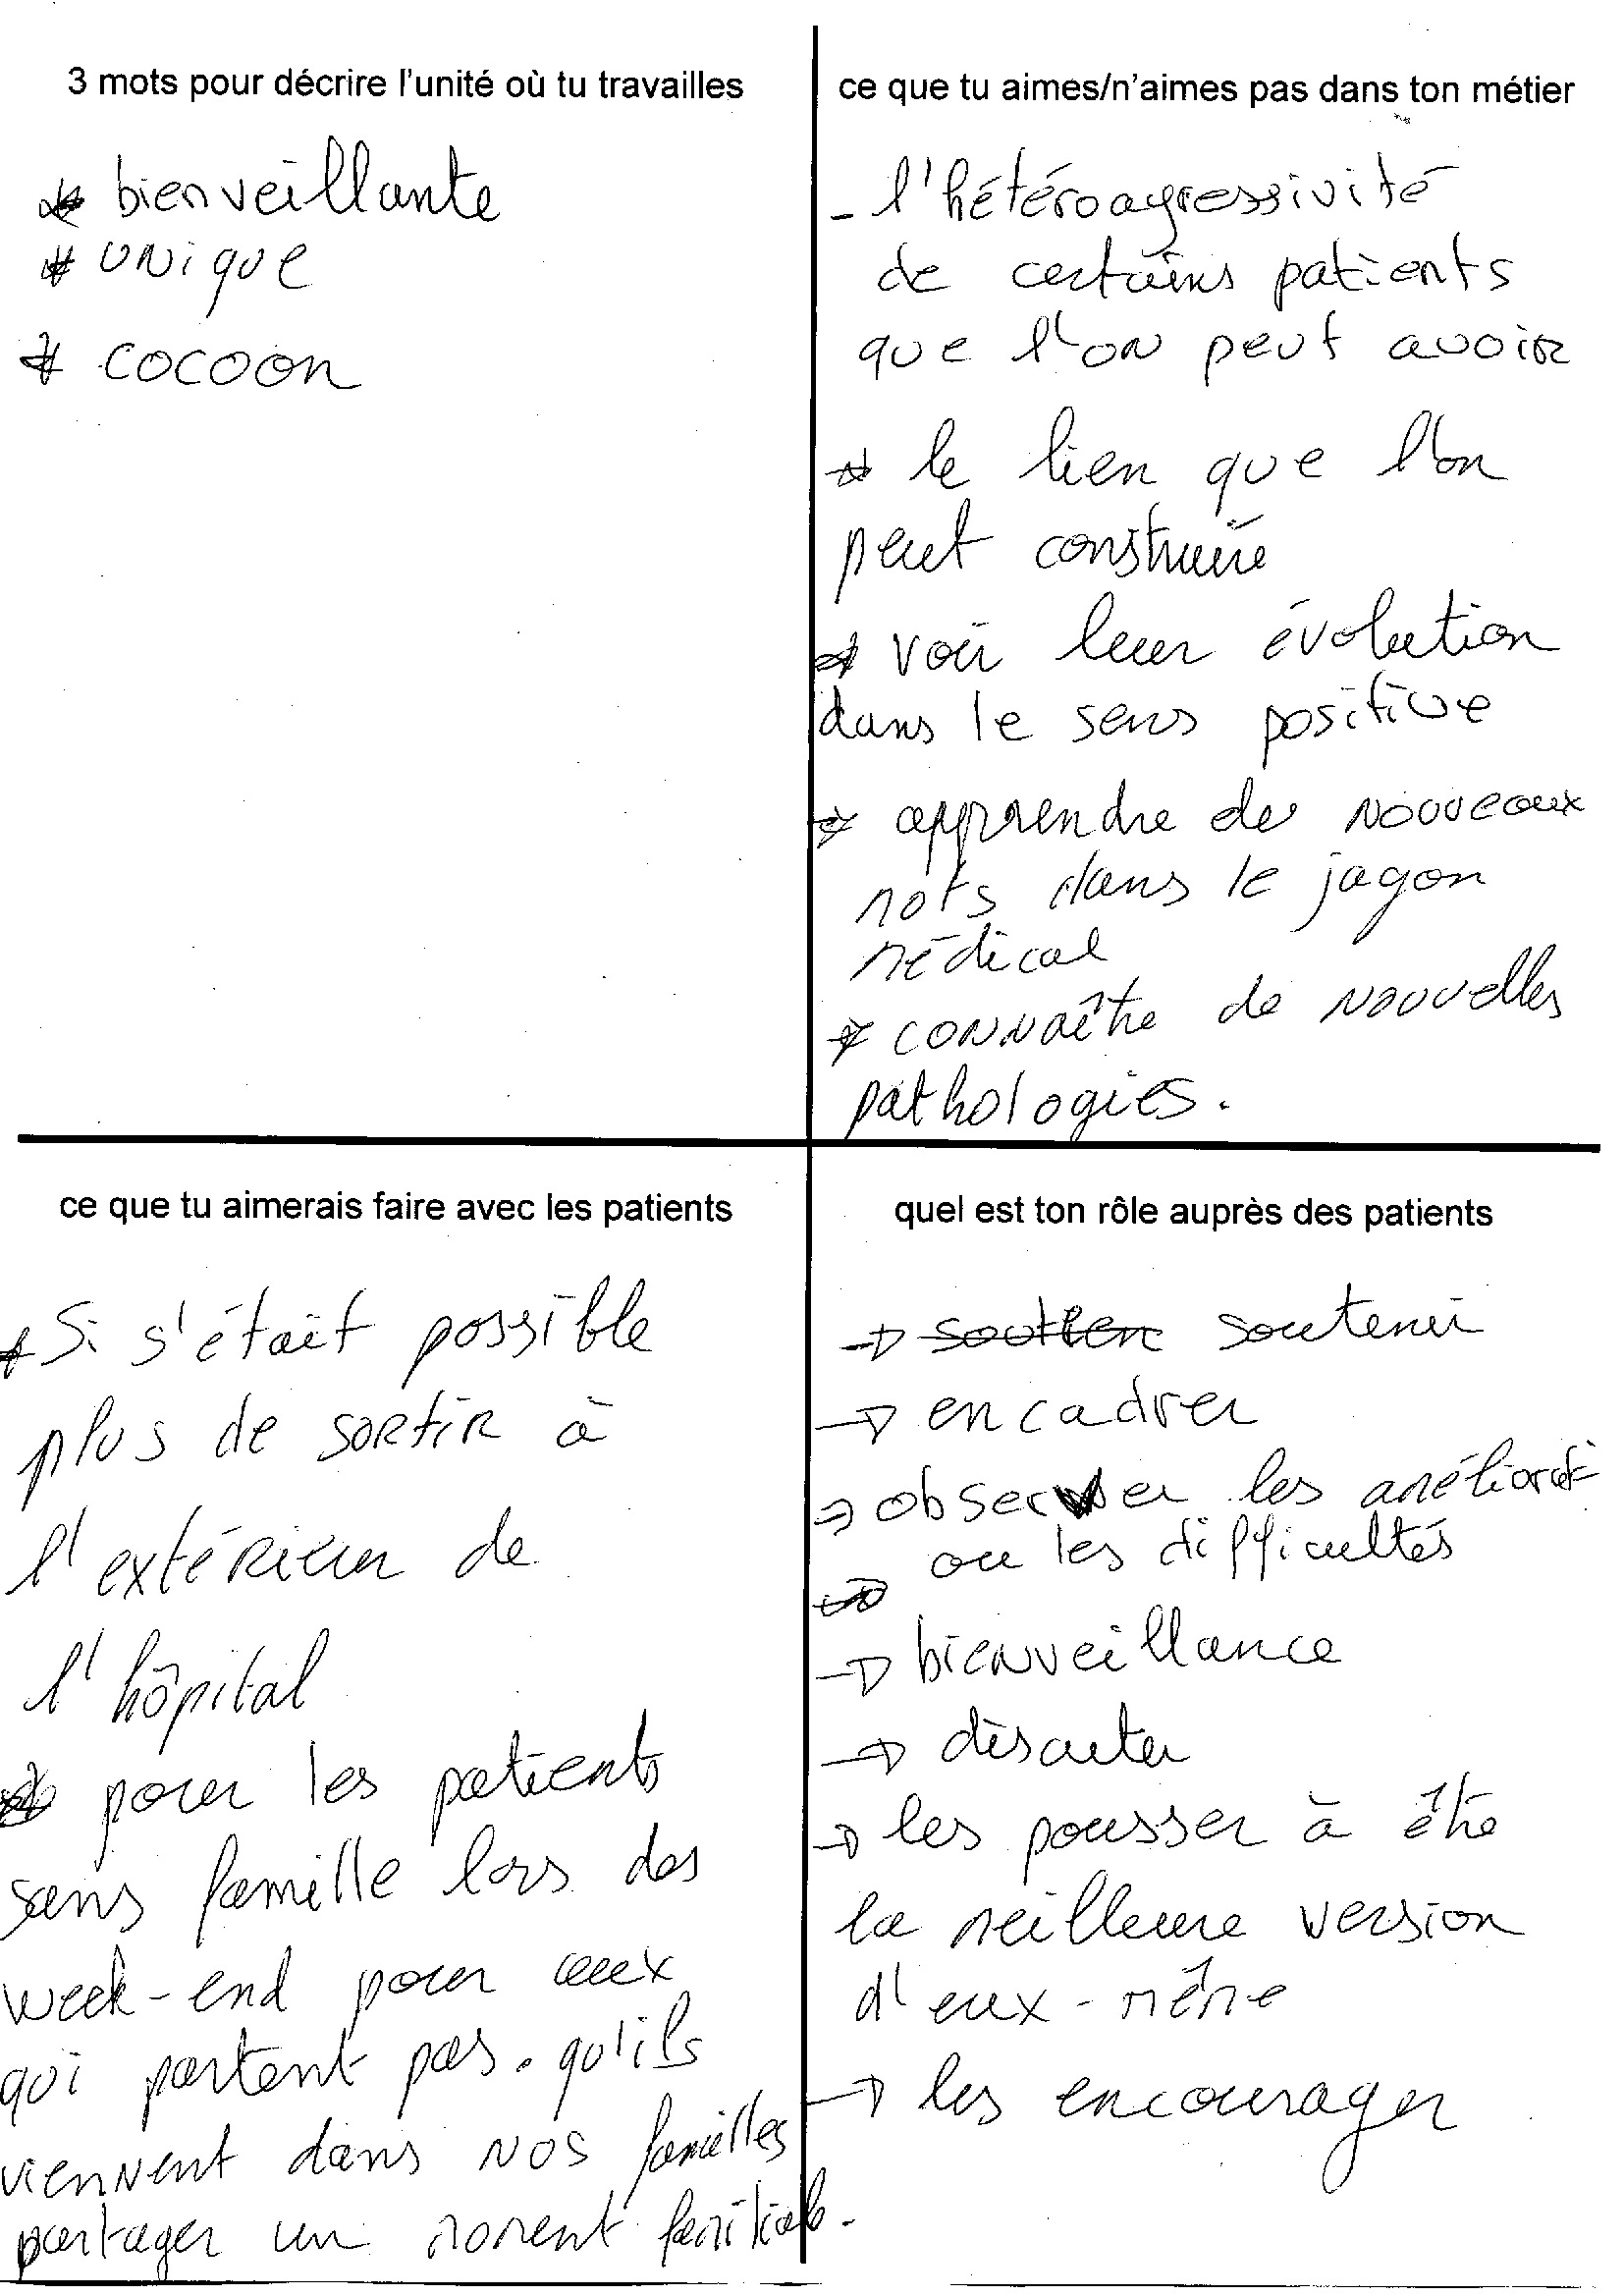 3 mots pour décrire l'unité où tu travailles
* bienveillante
* unique
* cocoon
ce que tu aimes/n'aimes pas dans ton métier
- l'hétéroagressivité
de certains patients
que l'on peut avoir
* le lien que l'on
peut construire
* voir leur évolution
dans le sens positive
* apprendre de nouveaux
mots dans le jagon
médical
* connaître de nouvelles
pathologies.
ce que tu aimerais faire avec les patients
* Si s'était possible
plus de sortir à
l'extérieur de
l'hôpital
* pour les patients
sans famille lors des
week-end pour ceux
qui partent pas. qu'ils
viennent dans nos familles
partager un moment familiale.
quel est ton rôle auprès des patients
→ soutien soutenir
→ encadrer
→ observer les améliorat°
ou les difficultés
→ bienveillance
→ discuter
→ les pousser à être
la meilleure version
d'eux-même
→ les encourager